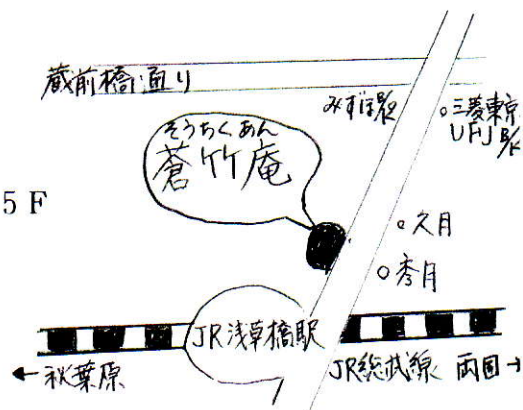 蔵前橋通り
みずほBK
三菱東京
UFJ BK
そうちくあん
蒼竹庵
5F
久月
秀月
JR浅草橋駅
←秋葉原
JR総武線 両国→